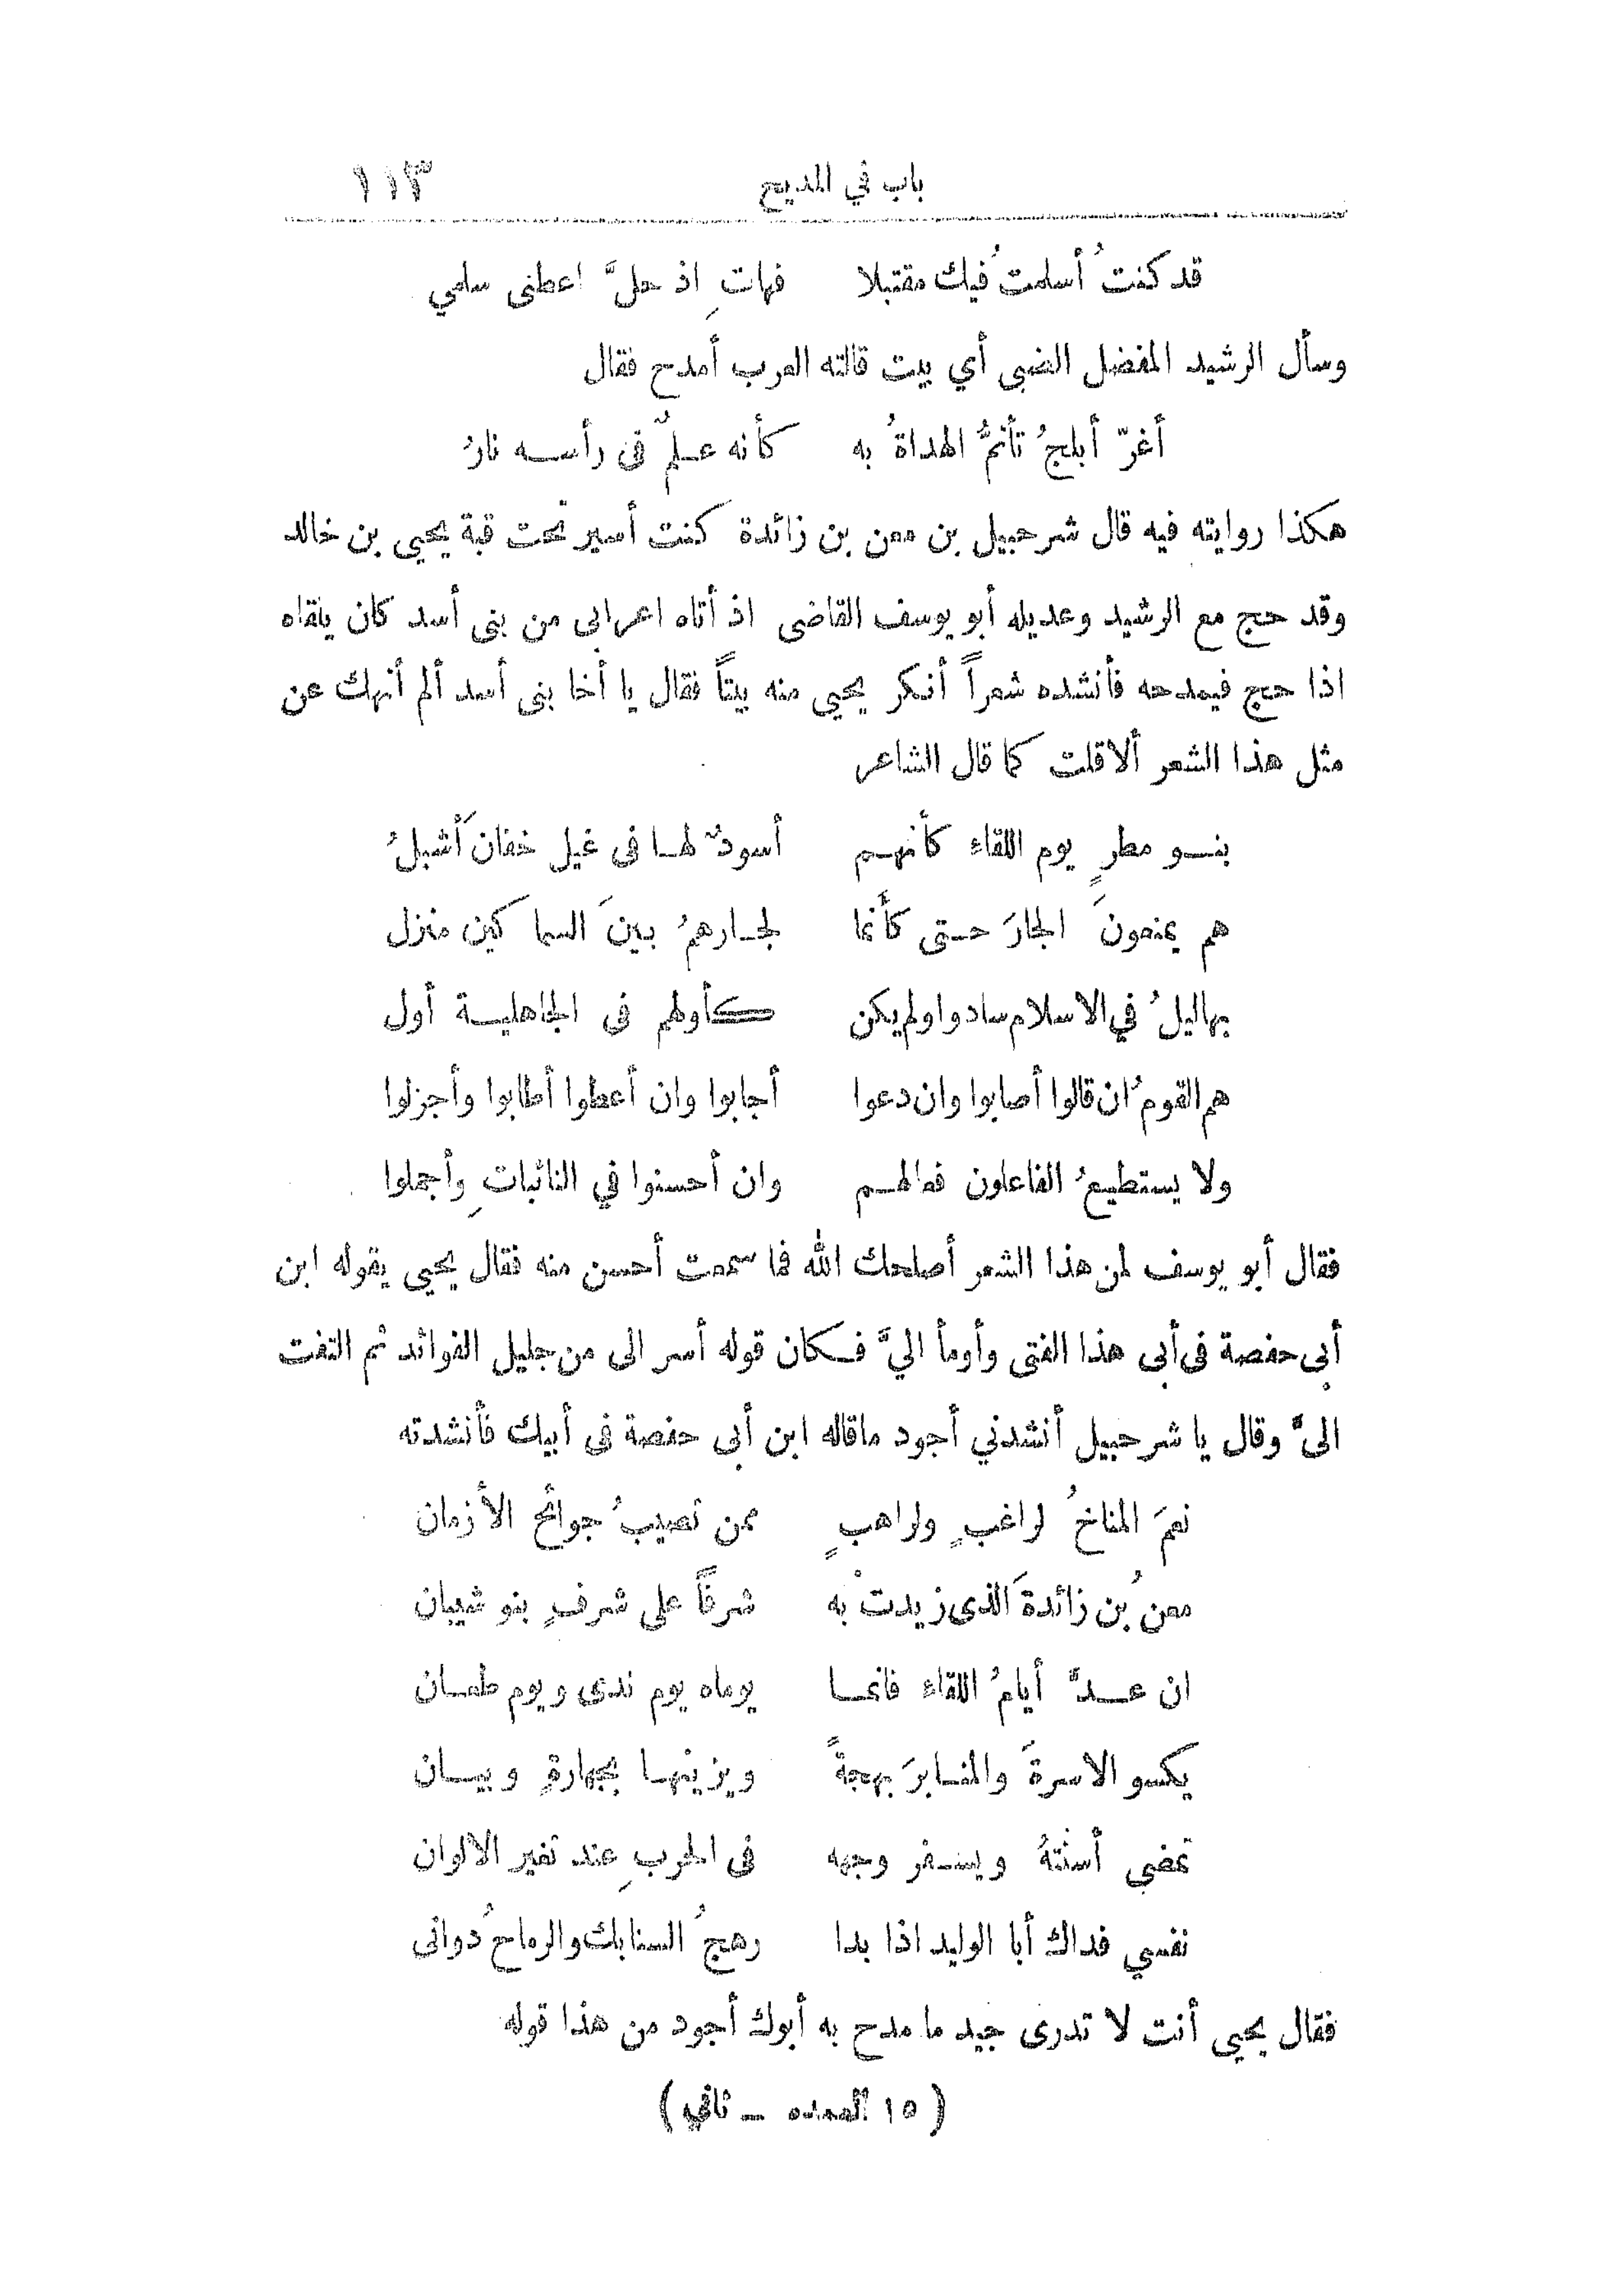 باب في المديح ١١٣
قد كنتُ أسلمتُ فيك مقتبلا فهاتِ اذ حلَّ اعطنى سلمي
وسأل الرشيد المفضل الضبى أي بيت قالته العرب أمدح فقال
أغرّ أبلجُ تأتمُّ الهداةُ به كأنه علمٌ فى رأسه نارُ
هكذا روايته فيه قال شرحبيل بن معن بن زائدة كنت أسير تحت قبة يحيي بن خالد
وقد حج مع الرشيد وعديله أبو يوسف القاضى اذ أتاه اعرابى من بنى أسد كان يلقاه
اذا حج فيمدحه فأنشده شعراً أنكر يحيي منه بيتاً فقال يا أخا بنى أسد ألم أنهك عن
مثل هذا الشعر ألا قلت كما قال الشاعر
بنو مطرٍ يوم اللقاء كأنهم أسودٌ لها فى غيل خفانَ أشبلُ
هم يمنعونَ الجارَ حتى كأنما لجارهمُ بينَ السماكين منزل
بهاليلُ في الاسلام سادوا ولم يكن كأولهم فى الجاهلية أول
هم القومُ ان قالوا أصابوا وان دعوا أجابوا وان أعطوا أطابوا وأجزلوا
ولا يستطيعُ الفاعلون فعالهم وان أحسنوا في النائباتِ وأجملوا
فقال أبو يوسف لمن هذا الشعر أصلحك الله فما سمعت أحسن منه فقال يحيي يقوله ابن
أبى حفصة فى أبى هذا الفتى وأومأ اليَّ فكان قوله أسر الى من جليل الفوائد ثم التفت
الىَّ وقال يا شرحبيل أنشدني أجود ماقاله ابن أبى حفصة فى أبيك فأنشدته
نعمَ المناخُ لراغبٍ ولراهبٍ ممن تصيبُ جوائح الأزمان
معنُ بن زائدةَ الذى زيدتْ به شرفاً على شرفٍ بنو شيبان
ان عدَّ أيامُ اللقاء فانما يوماه يوم ندى ويوم طعان
يكسو الاسرةَ والمنابرَ بهجةً ويزينها بجهارةٍ وبيان
تمضى أسنتهُ ويسفر وجهه فى الحربِ عند تغير الالوان
نفسي فداك أبا الوليد اذا بدا رهجُ السنابك والرماحُ دوانى
فقال يحيي أنت لا تدرى جيد ما مدح به أبوك أجود من هذا قوله
(١٥ العمده ــ ثاني)